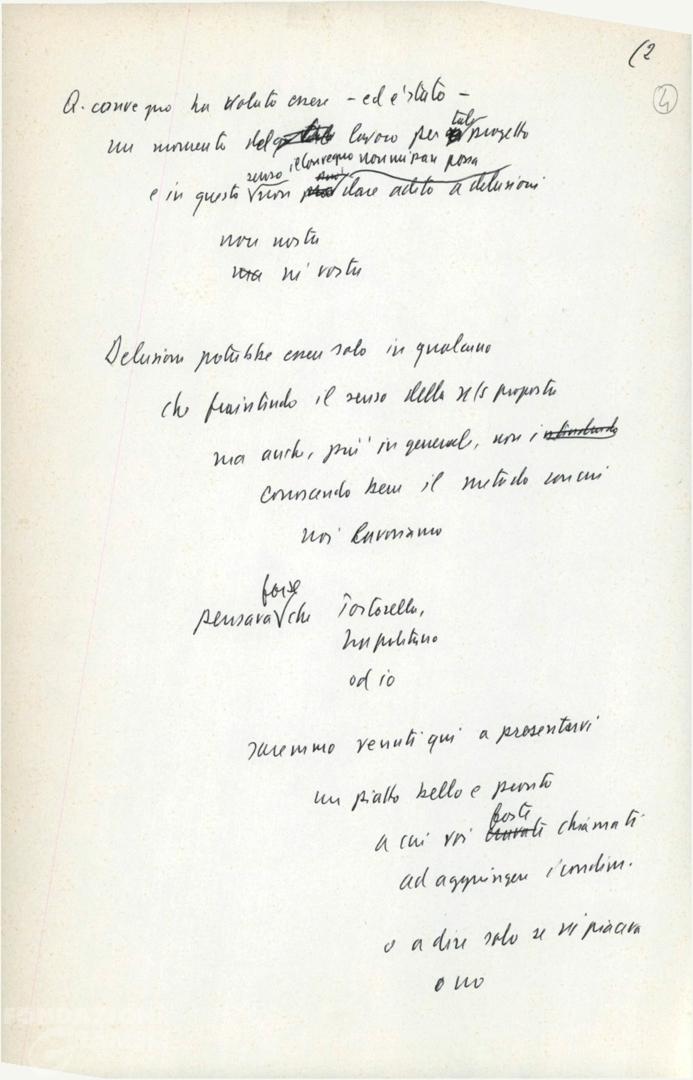 (2
4
Q. convegno ha voluto essere - ed è stato -
un momento del lavoro per tale progetto
e in questo senso il convegno non mi pare possa dare adito a delusioni
non nostre
né vostre
Delusione potrebbe esservi solo in qualcuno
che fraintendendo il senso della ns/s proposta
ma anche, più in generale, non
conoscendo bene il metodo con cui
noi lavoriamo
pensava forse che Tortorella,
Napolitano
od io
saremmo venuti qui a presentarvi
un piatto bello e pronto
a cui voi foste chiamati
ad aggiungere i condim.
o a dire solo se vi piaceva
o no